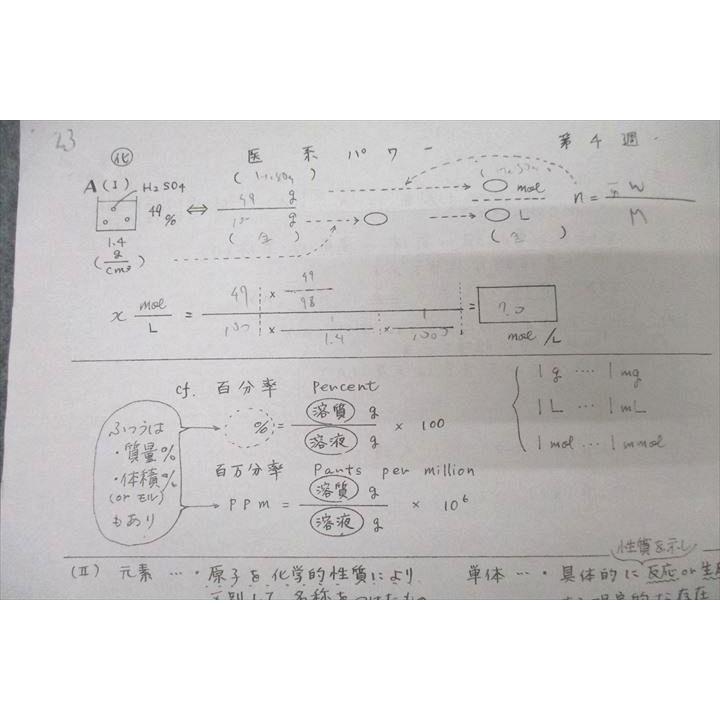 23
化
医系パワー
第4週
A (I) H₂SO₄
49%
1.4 (g/cm³)
49 g
100 g
(全)
mol
L
(全)
n = w/M
x mol/L = 49 × 49/98
100 × 1/1.4 × 1/1000
= 7.0 mol/L
cf. 百分率 Percent
% = 溶質 g / 溶液 g × 100
百万分率 Parts per million
PPM = 溶質 g / 溶液 g × 10⁶
ふつうは
・質量%
・体積%
(or モル)
もあり
1g ···· 1mg
1L ··· 1mL
1mol ··· 1mmol
性質を示し
(II) 元素 … ・原子を化学的性質により
区別して名称をつけたもの
単体 … ・具体的に反応 or 生